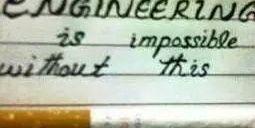 ENGINEERING
is impossible
without this